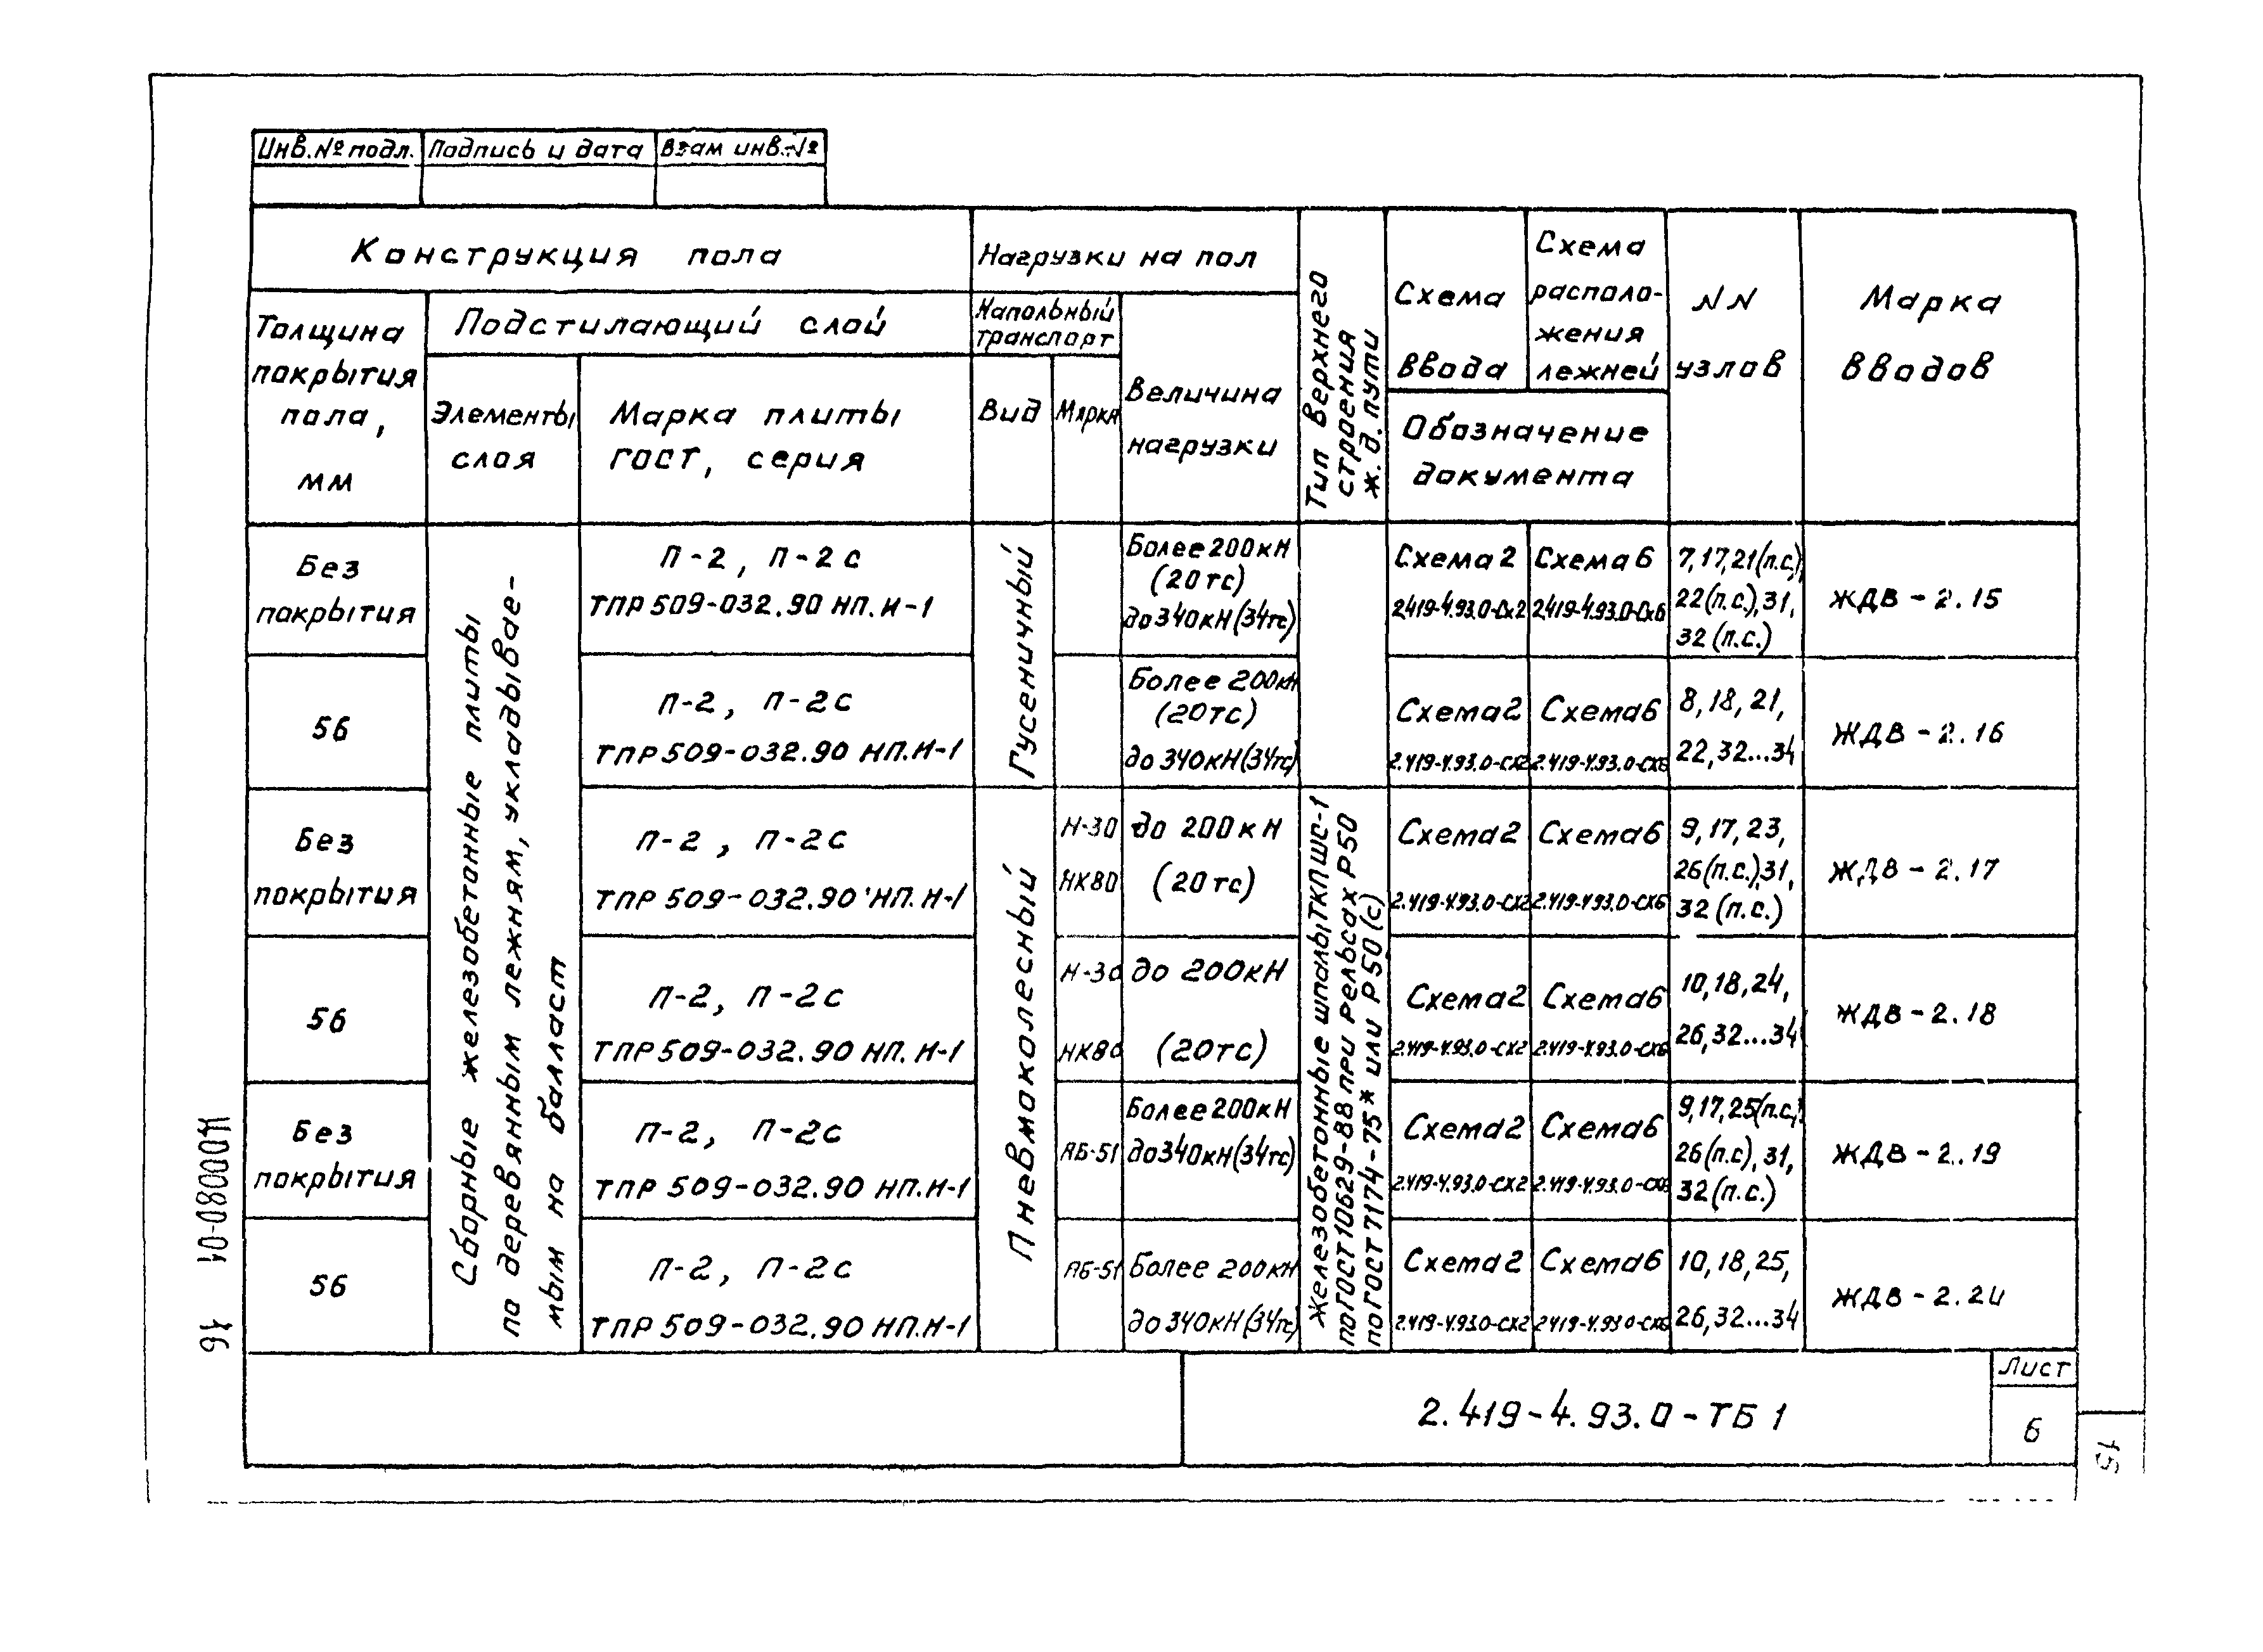 Инв.№подл. Подпись и дата Взам инв.№
Конструкция пола
Нагрузки на пол
Тип верхнего
строения
ж.д.пути
Схема
ввода
Схема
располо-
жения
лежней
Обозначение
документа
NN
узлов
Марка
вводов
Толщина
покрытия
пола,
мм
Подстилающий слой
Элементы
слоя
Марка плиты
ГОСТ, серия
Напольный
транспорт
Вид
Марка
Величина
нагрузки
Сборные железобетонные плиты
по деревянным лежням, укладывае-
мым на балласт
Гусеничный
Пневмоколесный
Железобетонные шпалы ТКПШС-1
по ГОСТ 10629-88 при рельсах Р50
по ГОСТ 7174-75* или Р50(с)
Без
покрытия
П-2, П-2с
ТПР 509-032.90 НП.И-1
Более 200кН
(20тс)
до 340кН(34тс)
Схема 2
2.419-4.93.0-Сх2
Схема 6
2.419-4.93.0-Сх6
7,17,21(п.с.),
22(п.с.),31,
32(п.с.)
ЖДВ-2.15
56
П-2, П-2с
ТПР 509-032.90 НП.И-1
Более 200кН
(20тс)
до 340кН(34тс)
Схема 2
2.419-4.93.0-СХ2
Схема 6
2.419-4.93.0-СХ6
8,18,21,
22,32...34
ЖДВ-2.16
Без
покрытия
П-2, П-2с
ТПР 509-032.90 НП.И-1
Н-30
НК80
до 200кН
(20тс)
Схема 2
2.419-4.93.0-СХ2
Схема 6
2.419-4.93.0-СХ6
9,17,23,
26(п.с.),31,
32(п.с.)
ЖДВ-2.17
56
П-2, П-2с
ТПР 509-032.90 НП.И-1
Н-30
НК80
до 200кН
(20тс)
Схема 2
2.419-4.93.0-СХ2
Схема 6
2.419-4.93.0-СХ6
10,18,24,
26,32...34
ЖДВ-2.18
Без
покрытия
П-2, П-2с
ТПР 509-032.90 НП.И-1
АБ-51
Более 200кН
до 340кН(34тс)
Схема 2
2.419-4.93.0-СХ2
Схема 6
2.419-4.93.0-СХ6
9,17,25(п.с.),
26(п.с),31,
32(п.с.)
ЖДВ-2.19
56
П-2, П-2с
ТПР 509-032.90 НП.И-1
АБ-51
Более 200кН
до 340кН(34тс)
Схема 2
2.419-4.93.0-СХ2
Схема 6
2.419-4.93.0-СХ6
10,18,25,
26,32...34
ЖДВ-2.20
2.419-4.93.0-ТБ1
Лист
6
Ц00080-01 16
15